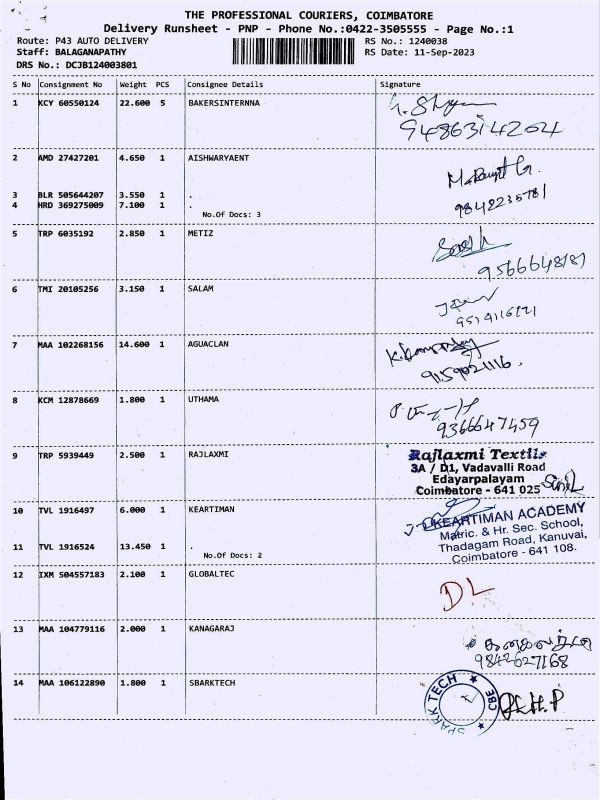 THE PROFESSIONAL COURIERS, COIMBATORE
Delivery Runsheet - PNP - Phone No.:0422-3505555 - Page No.:1
Route: P43 AUTO DELIVERY RS No.: 1240038
Staff: BALAGANAPATHY RS Date: 11-Sep-2023
DRS No.: DCJB124003801
S No Consignment No Weight PCS Consignee Details Signature
1 KCY 60550124 22.600 5 BAKERSINTERNNA
9486314204
2 AMD 27427201 4.650 1 AISHWARYAENT
3 BLR 505644207 3.550 1 .
4 HRD 369275009 7.100 1 .
9842235781
No.Of Docs: 3
5 TRP 6035192 2.850 1 METIZ
9566648181
6 TMI 20105256 3.150 1 SALAM
7 MAA 102268156 14.600 1 AGUACLAN
9159021116.
8 KCM 12878669 1.800 1 UTHAMA
9366647459
9 TRP 5939449 2.500 1 RAJLAXMI
Rajlaxmi Textile
3A / D1, Vadavalli Road
Edayarpalayam
Coimbatore - 641 025
10 TVL 1916497 6.000 1 KEARTIMAN
KEARTIMAN ACADEMY
Matric. & Hr. Sec. School,
Thadagam Road, Kanuvai,
Coimbatore - 641 108.
11 TVL 1916524 13.450 1 .
No.Of Docs: 2
12 IXM 504557183 2.100 1 GLOBALTEC
DL
13 MAA 104779116 2.000 1 KANAGARAJ
9842627168
14 MAA 106122890 1.800 1 SBARKTECH
SPARK TECH ★ CBE ★